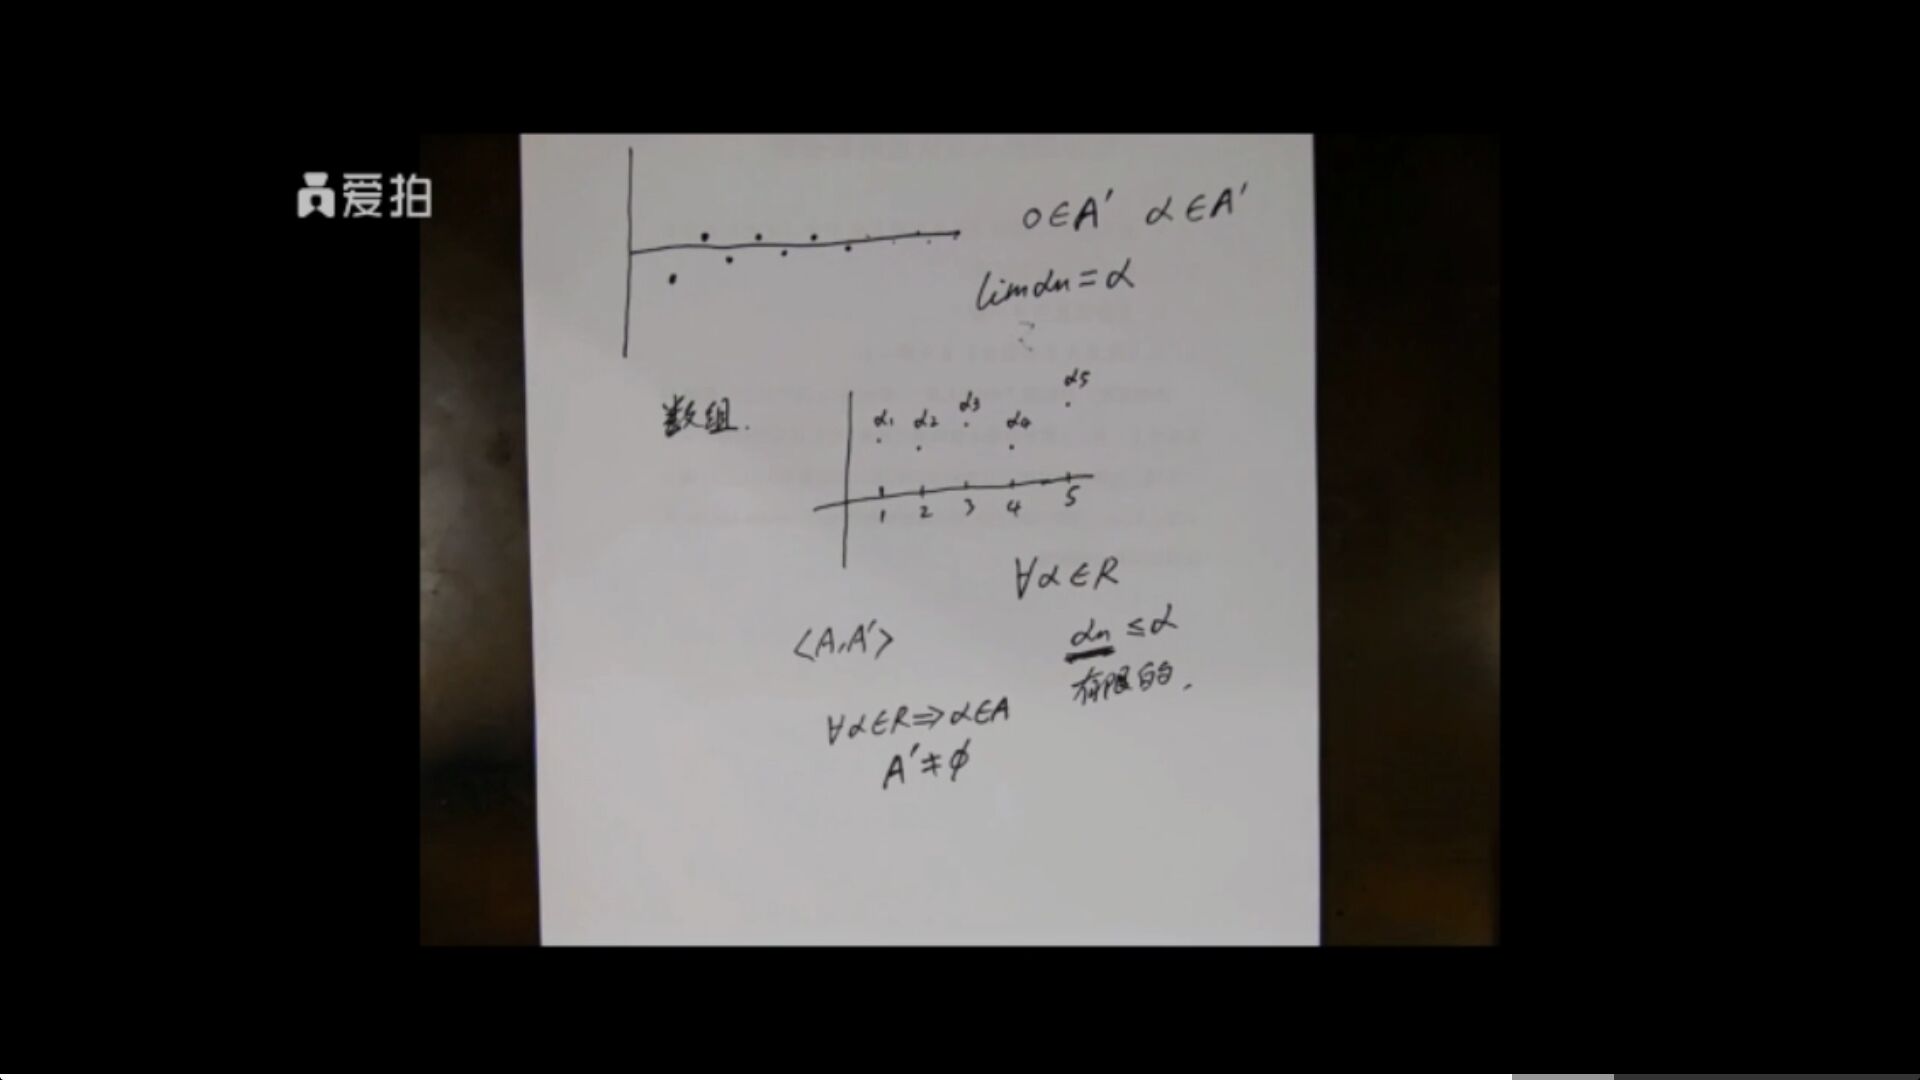 爱拍
0∈A′ α∈A′
lim αn = α
数组.
α1 α2 α3 α4 α5
1 2 3 4 5
∀α∈R
αn ≤ α
有限的.
<A,A′>
∀α∈R⇒α∈A
A′≠ϕ